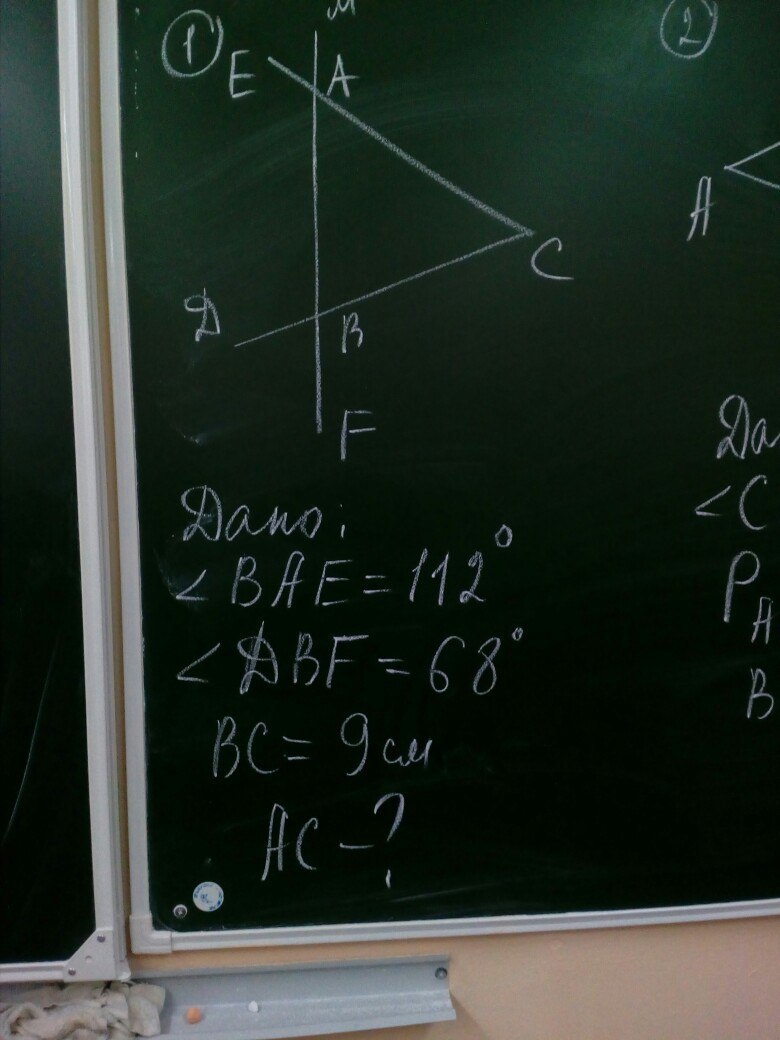 М
① ②
E A
A
C
D B
F
Дано:
∠BAE = 112°
∠DBF = 68°
BC = 9 см
AC - ?
Да
∠C
P
A
B